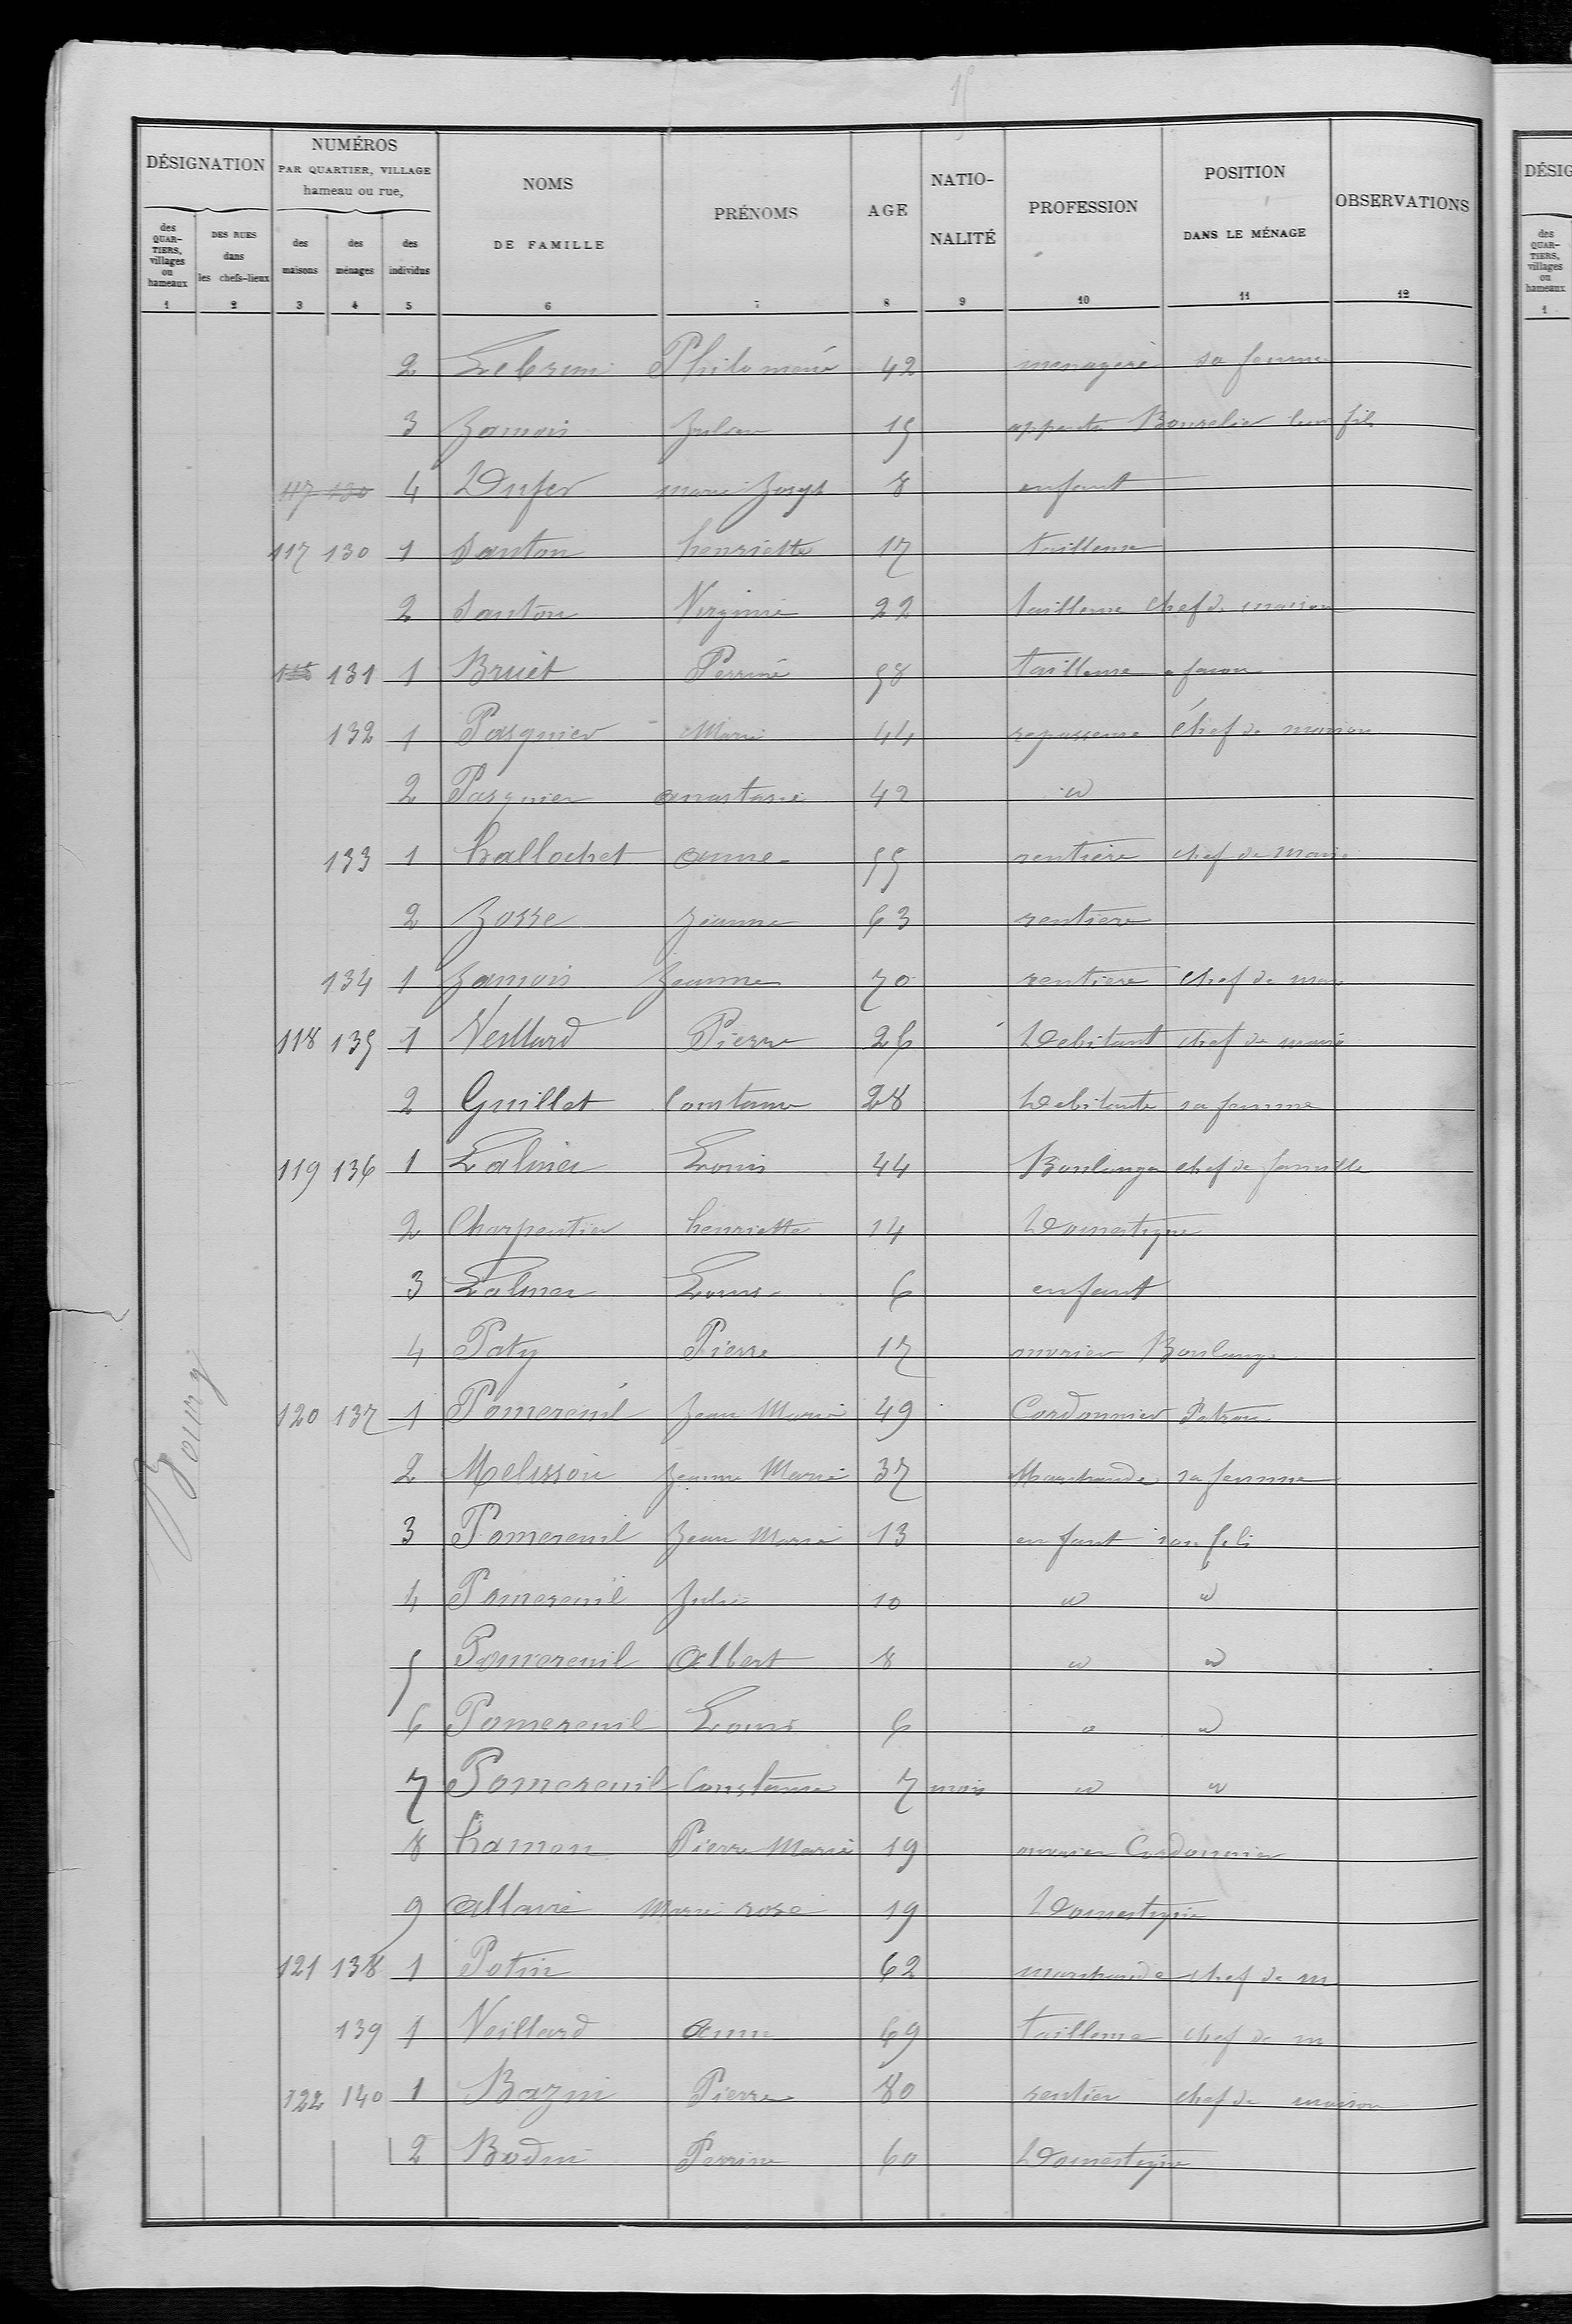 15
DÉSIGNATION
NUMÉROS
PAR QUARTIER, VILLAGE
hameau ou rue,
NOMS
DE FAMILLE
PRÉNOMS
AGE
NATIO-
NALITÉ
PROFESSION
POSITION
DANS LE MÉNAGE
OBSERVATIONS
des QUAR-TIERS, villages ou hameaux
DES RUES dans les chefs-lieux
des maisons
des ménages
des individus
1 2 3 4 5 6 7 8 9 10 11 12
2 Lebrun Philomené 42 menagere sa femme
3 Jamois Julien 15 Bourelier leur fils
117 130 4 Dufer marie Joseph 8 enfant
117 130 1 Santon henriette 17 tailleuse
2 Santon Virginie 22 tailleuse chef de maison
131 1 Bruet Perriné 58 tailleuse a facon
132 1 Pasquier Marie 44 repasseuse chef de maison
2 Pasquier anastasie 42 id
133 1 hallochet anne 55 rentière chef de mais
2 Josse Jeanne 63 rentiere
134 1 Jamois Jeanne 70 rentiere chef de mais
118 135 1 Veillard Pierre 26 Debitant chef de mais
2 Guillet Constance 28 Debitante sa femme
119 136 1 Lalmer Louis 44 Boulanger chef de famille
2 Charpentier henriette 14 Domestique
3 Lalmer Louis 6 enfant
4 Paty Pierre 17 ouvrier Boulanger
Bourg
120 137 1 Pomereuil Jean Marie 49 Cordonnier Patron
2 Melisson Jeanne Marie 37 Marchande sa femme
3 Pomereuil Jean Marie 13 enfant son fils
4 Pomereuil Julie 10 id id
5 Pomereuil Albert 8 id id
6 Pomereuil Louis 6 id id
7 Pomereuil Constance 7 mois id id
8 hamon Pierre Marie 19 ouvrier Cordonnier
9 allaire Marie rose 19 Domestique
121 138 1 Potin 62 marchande chef de m
139 1 Veillard anne 69 tailleuse chef de m
122 140 1 Bazin Pierre 80 rentier chef de maison
2 Bodin Perrine 60 Domestique
DÉSIG
des QUAR-TIERS, villages ou hameaux
1